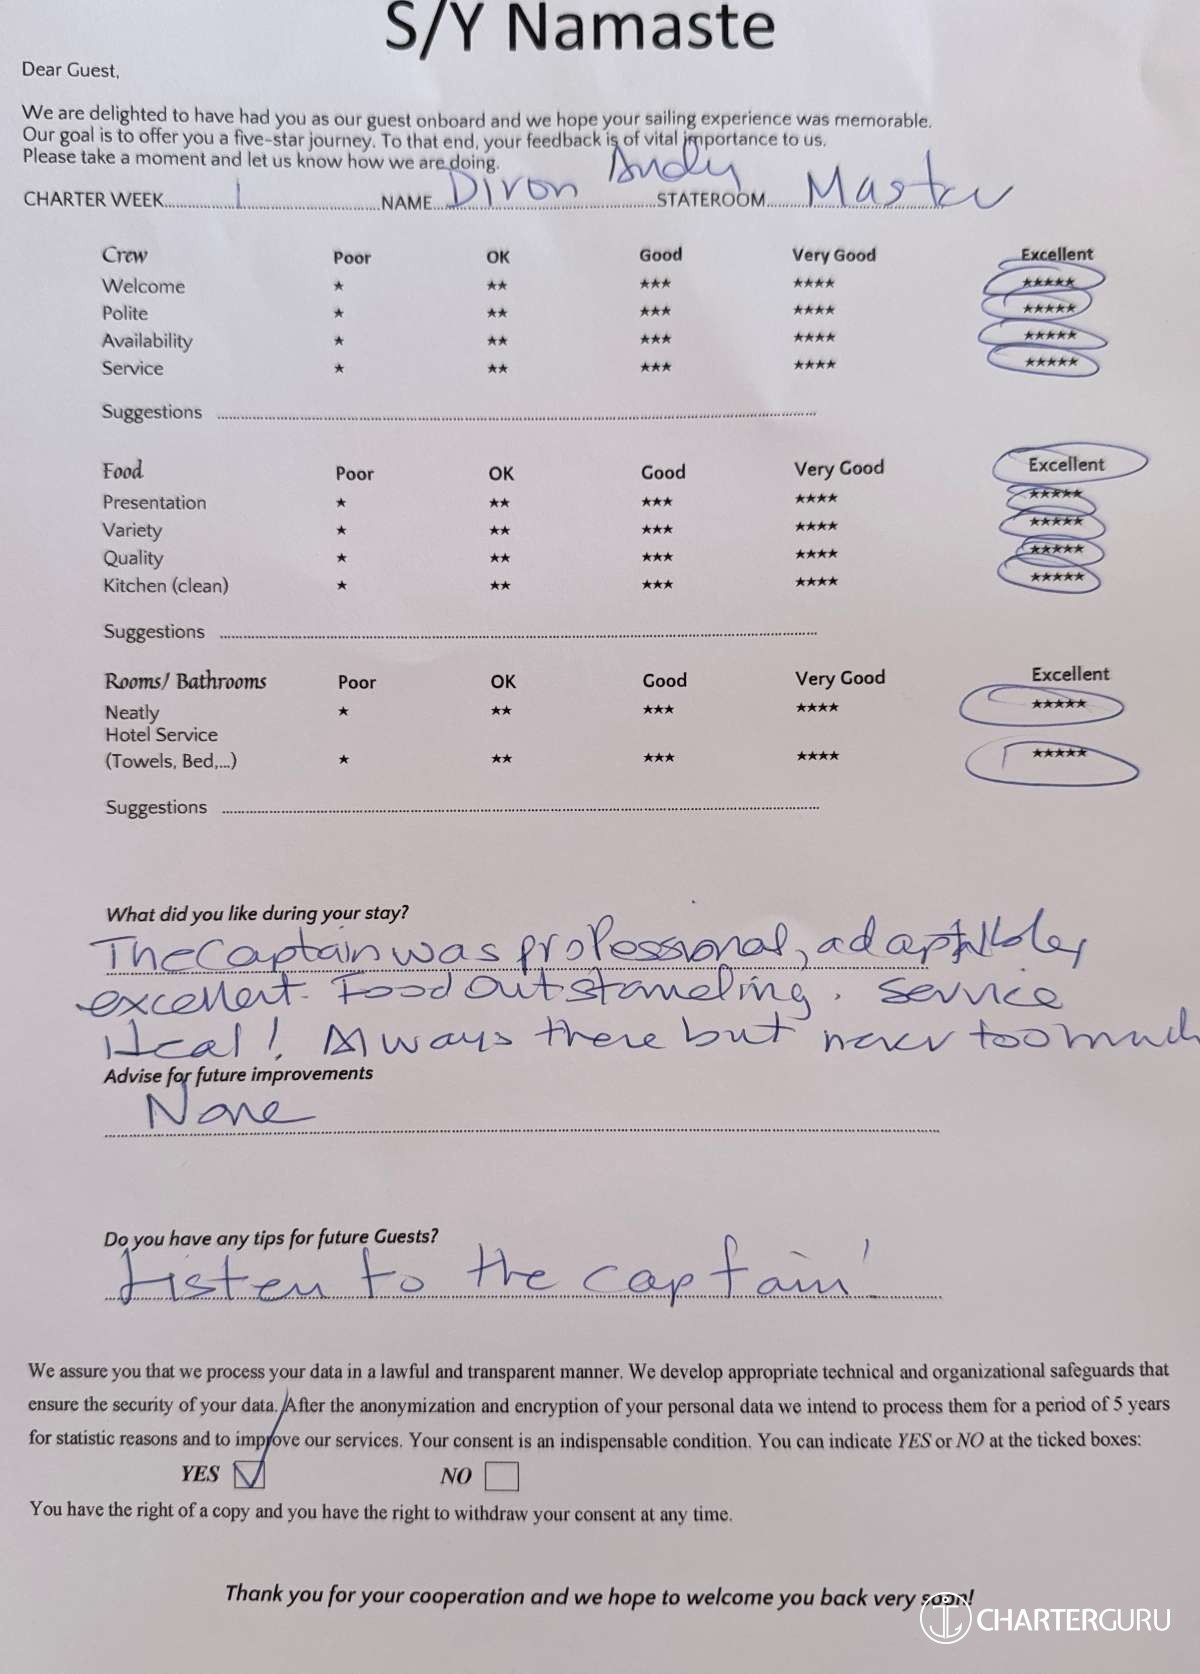 S/Y Namaste
Dear Guest,
We are delighted to have had you as our guest onboard and we hope your sailing experience was memorable.
Our goal is to offer you a five-star journey. To that end, your feedback is of vital importance to us.
Please take a moment and let us know how we are doing.
CHARTER WEEK 1 NAME Andy STATEROOM Master
Crew Poor OK Good Very Good Excellent
Welcome ★ ★★ ★★★ ★★★★ ★★★★★
Polite ★ ★★ ★★★ ★★★★ ★★★★★
Availability ★ ★★ ★★★ ★★★★ ★★★★★
Service ★ ★★ ★★★ ★★★★ ★★★★★
Suggestions
Food Poor OK Good Very Good Excellent
Presentation ★ ★★ ★★★ ★★★★ ★★★★★
Variety ★ ★★ ★★★ ★★★★ ★★★★★
Quality ★ ★★ ★★★ ★★★★ ★★★★★
Kitchen (clean) ★ ★★ ★★★ ★★★★ ★★★★★
Suggestions
Rooms/ Bathrooms Poor OK Good Very Good Excellent
Neatly ★ ★★ ★★★ ★★★★ ★★★★★
Hotel Service
(Towels, Bed,...) ★ ★★ ★★★ ★★★★ ★★★★★
Suggestions
What did you like during your stay?
The captain was professional, adaptable,
excellent. Food outstanding. Service
ideal! Always there but never too much
Advise for future improvements
None
Do you have any tips for future Guests?
Listen to the captain!
We assure you that we process your data in a lawful and transparent manner. We develop appropriate technical and organizational safeguards that
ensure the security of your data. After the anonymization and encryption of your personal data we intend to process them for a period of 5 years
for statistic reasons and to improve our services. Your consent is an indispensable condition. You can indicate YES or NO at the ticked boxes:
YES NO
You have the right of a copy and you have the right to withdraw your consent at any time.
Thank you for your cooperation and we hope to welcome you back very soon!
CHARTERGURU